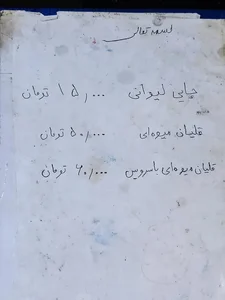 بسمه تعالی
چایی لیوانی ۱۵٫۰۰۰ تومان
قلیان میوه‌ای ۵۰٫۰۰۰ تومان
قلیان میوه‌ای باسرویس ۶۰٫۰۰۰ تومان